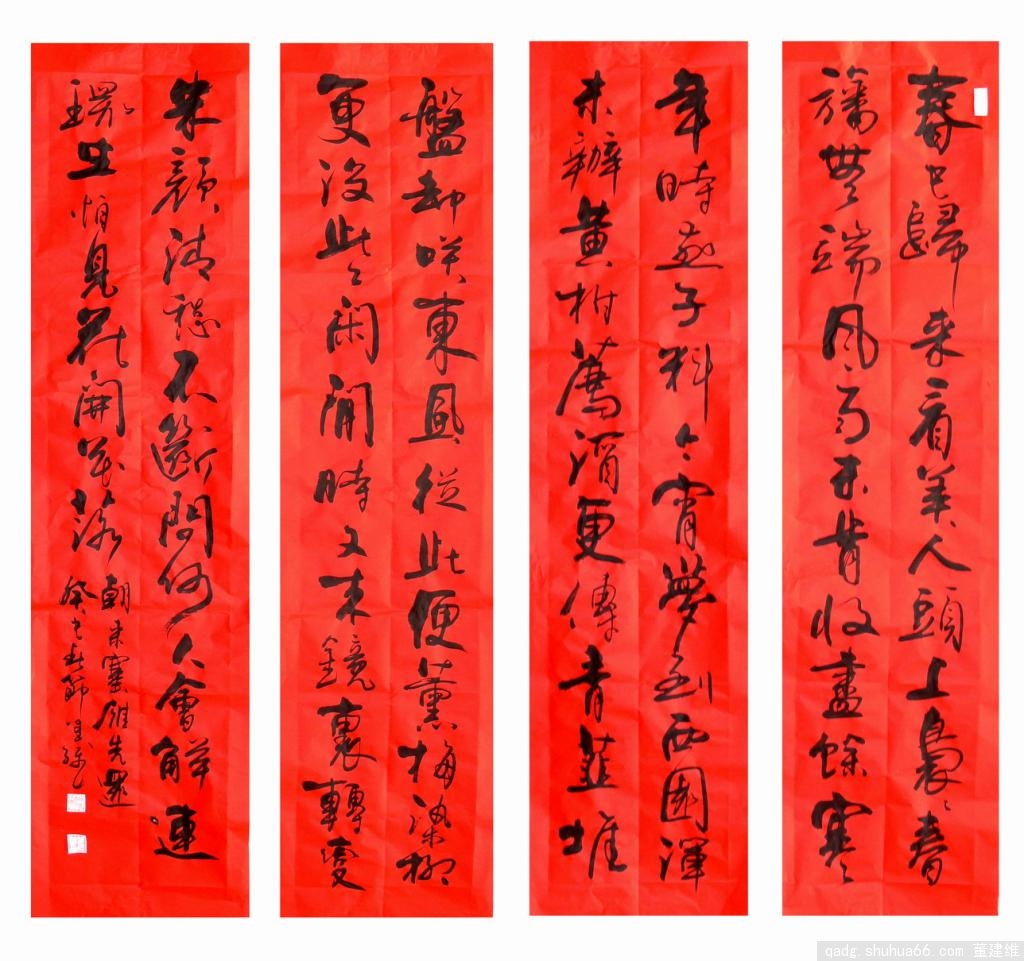 春已歸来看美人頭上裊裊春
旛無端風雨未肯收盡餘寒
年時燕子料今宵夢到西園渾
未辦黄柑薦酒更傳青韭堆
盤却咲東風從此便薰梅染柳
更没些閑閑時又来鏡裏轉變
朱顔清愁不斷問何人會解連
環生怕見花開花落
朝来塞雁先還
癸巳春節
qadg.shuhua66.com 董建维